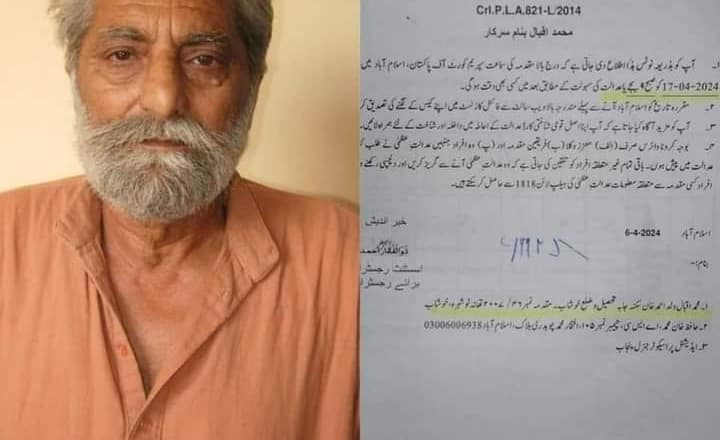 Crl.P.L.A.821-L/2014
محمد اقبال بنام سرکار
۱۔ آپ کو بذریعہ نوٹس ہذا اطلاع دی جاتی ہے کہ درج بالا مقدمہ کی سماعت سپریم کورٹ آف پاکستان، اسلام آباد میں
17-04-2024 کو صبح 9 بجے یا عدالت کی سہولت کے مطابق بعد میں کسی بھی وقت ہو گی۔
۲۔ مقررہ تاریخ کو اسلام آباد آنے سے پہلے مندرجہ بالا ویب سائٹ سے فائنل کازلسٹ میں اپنے کیس کے لگنے کی تصدیق کر
۳۔ آپ کو مزید آگاہ کیا جاتا ہے کہ آپ اپنا اصل قومی شناختی کارڈ عدالت کے احاطہ میں داخلہ اور شناخت کے لئے ہمراہ لائیں۔
بوجہ کرونا وائرس صرف (الف) معزز وکلا (ب) فریقین مقدمہ اور (پ) وہ افراد جنہیں عدالت عظمٰی نے طلب کیا
عدالت میں پیش ہوں۔ باقی تمام غیر متعلقہ افراد کو تلقین کی جاتی ہے کہ وہ عدالت عظمٰی آنے سے گریز کریں اور دلچسپی رکھنے و
افراد کسی مقدمہ سے متعلقہ معلومات عدالت عظمٰی کی ہیلپ لائن 1818 سے حاصل کر سکتے ہیں۔
خیر اندیش
اسلام آباد 6-4-2024
ذوالفقار احمد
اسسٹنٹ رجسٹرار
برائے رجسٹرار
بنام:
۱۔ محمد اقبال ولد احمد خان سکنہ جابہ تحصیل و ضلع خوشاب۔ مقدمہ نمبر ۳۶/۲۰۰۷ تھانہ نوشہرہ، خوشاب
۲۔ حافظ خان محمد، اے ایس سی، چیمبر نمبر ۱۰۵، افتخار محمد چوہدری بلاک، اسلام آباد 03006006938
۳۔ ایڈیشنل پراسیکیوٹر جنرل پنجاب